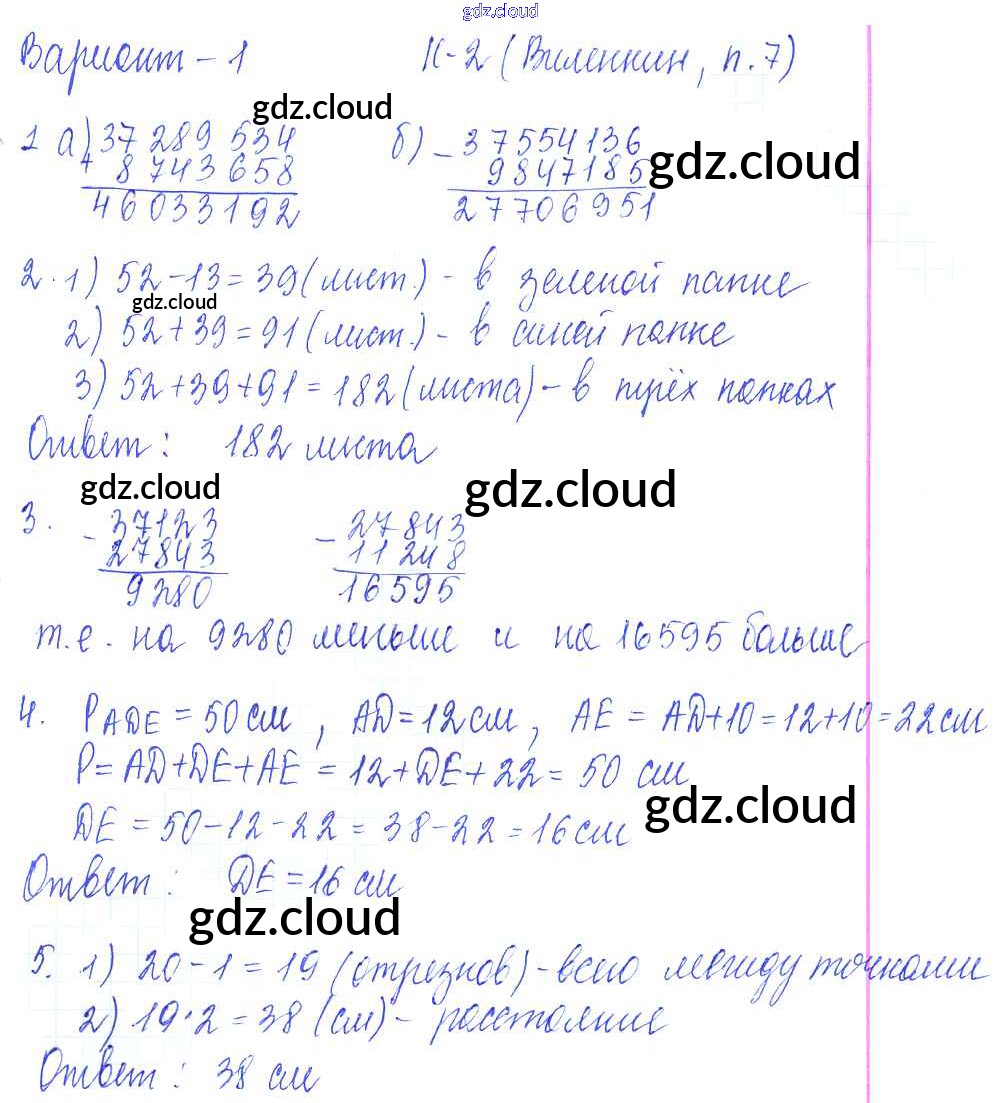 gdz.cloud
Вариант - 1 К-2 (Виленкин, п. 7)
gdz.cloud
1 а) 37 289 534 б) - 37554136
+ 8 743 658 9847185
gdz.cloud
46033192 27706951
2. 1) 52-13=39 (лист.) - в зеленой папке
gdz.cloud
2) 52+39=91 (лист.) - в синей папке
3) 52+39+91=182 (листа) - в трёх папках
Ответ: 182 листа
gdz.cloud gdz.cloud
3. - 37123 - 27843
27843 11248
9280 16595
т.е. на 9280 меньше и на 16595 больше
4. PADE = 50 см, AD=12 см, AE = AD+10=12+10=22см
P=AD+DE+AE = 12+DE+22= 50 см
gdz.cloud
DE = 50-12-22 = 38-22=16 см
Ответ: DE=16 см
gdz.cloud
5. 1) 20-1=19 (отрезков) - всего между точками
2) 19·2=38 (см) - расстояние
Ответ: 38 см